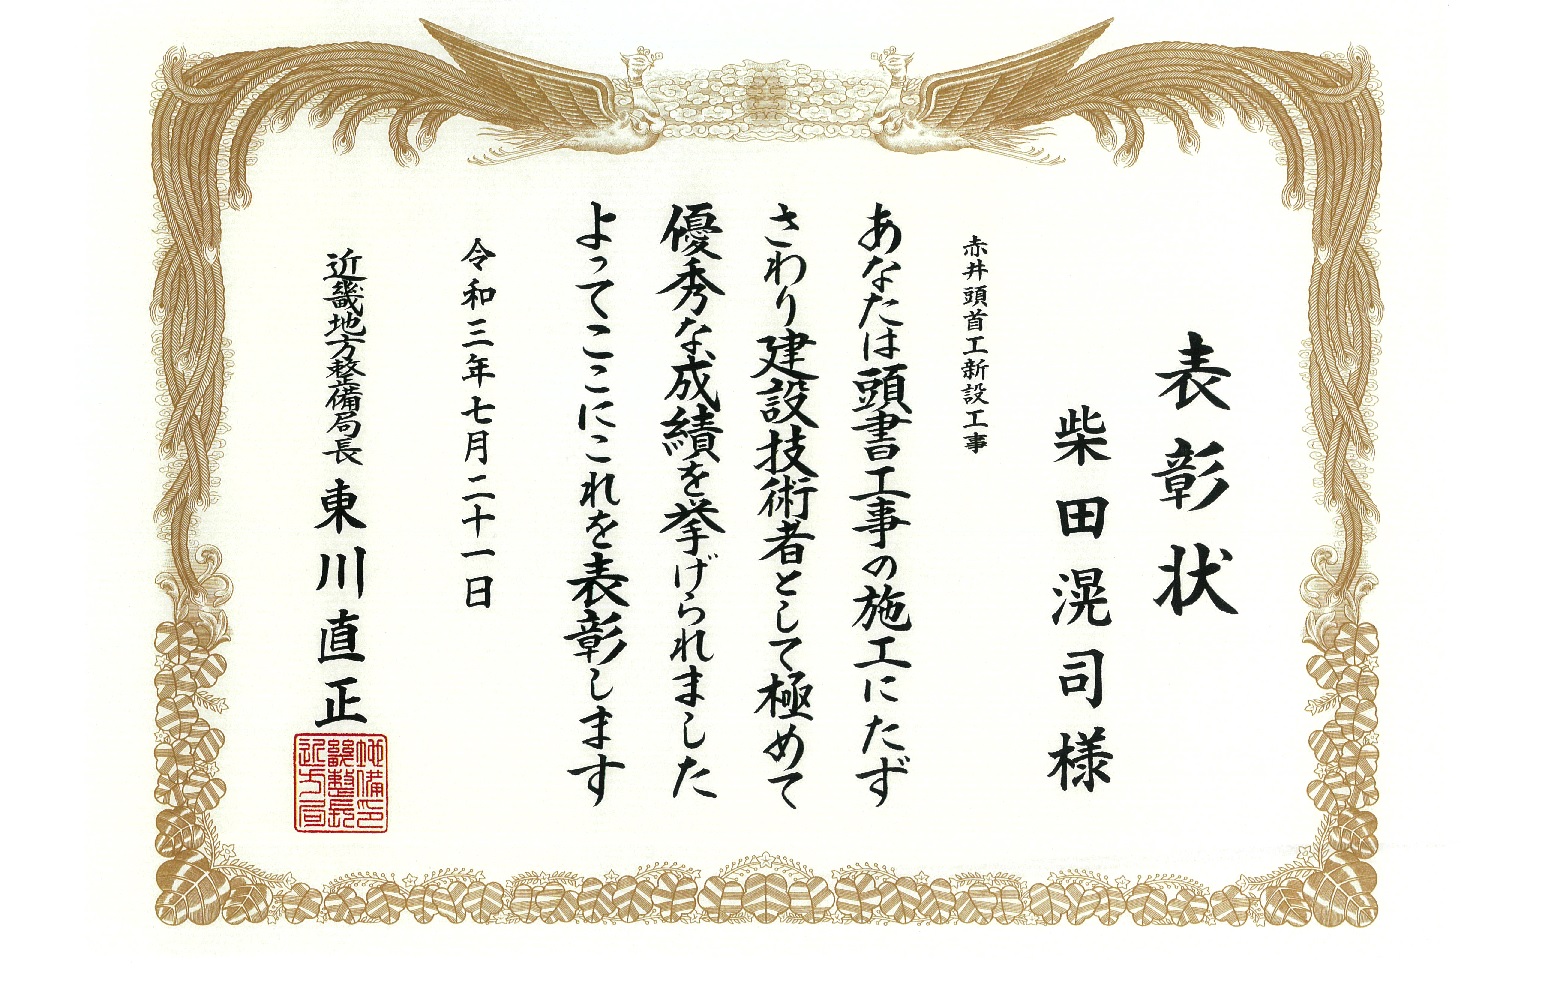 表彰状
柴田滉司様
赤井頭首工新設工事
あなたは頭書工事の施工にたず
さわり建設技術者として極めて
優秀な成績を挙げられました
よってここにこれを表彰します
令和三年七月二十一日
近畿地方整備局長 東川直正